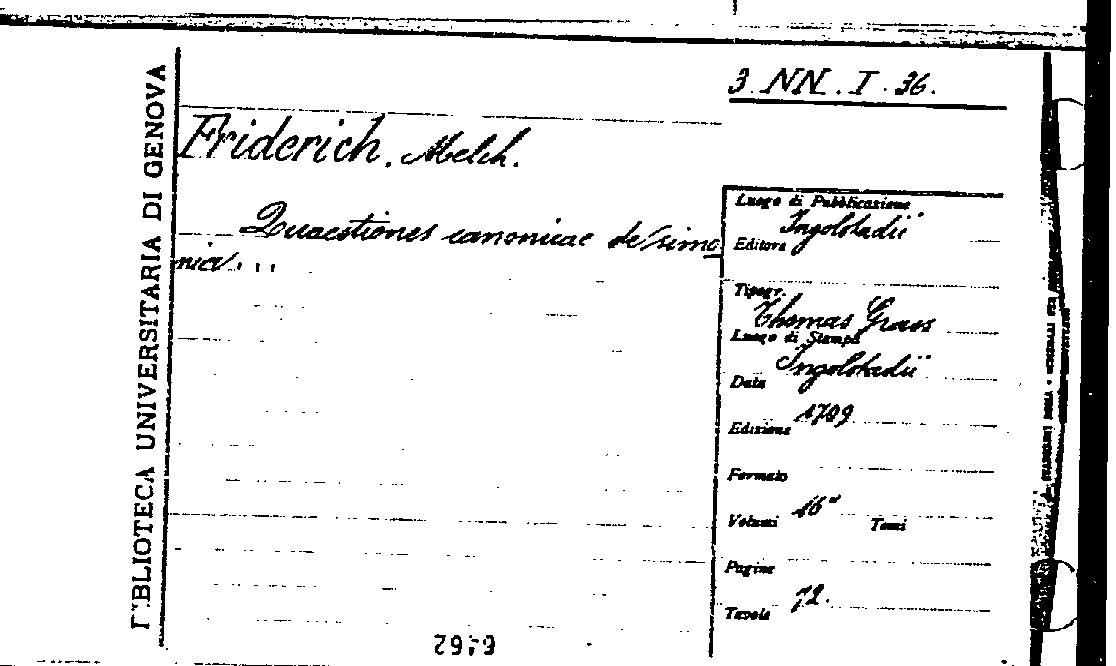 3 NN. I. 36.
BIBLIOTECA UNIVERSITARIA DI GENOVA
Friderich. Melch.
Quaestiones canonicae de simo
nia...
Luogo di Pubblicazione
Ingolstadii
Editore
Tipogr.
Thomas Grass
Luogo di Stampa
Ingolstadii
Data
1709
Edizione
Formato
16°
Volumi Tomi
Pagine
72.
Tavole